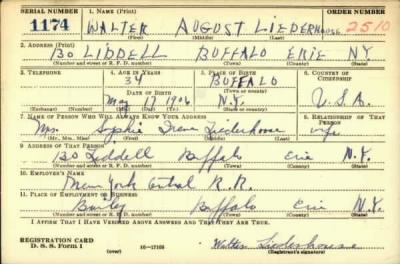 SERIAL NUMBER 1. NAME (Print) ORDER NUMBER
1174 WALTER AUGUST LIEDERHOUSE 2510
(First) (Middle) (Last)
2. ADDRESS (Print)
130 LIDDELL BUFFALO ERIE N.Y.
(Number and street or R. F. D. number) (Town) (County) (State)
3. TELEPHONE 4. AGE IN YEARS 5. PLACE OF BIRTH 6. COUNTRY OF CITIZENSHIP
34 BUFFALO
DATE OF BIRTH (Town or county)
May 17 1906 N.Y. U.S.A.
(Exchange) (Number) (Mo.) (Day) (Yr.) (State or country)
7. NAME OF PERSON WHO WILL ALWAYS KNOW YOUR ADDRESS 8. RELATIONSHIP OF THAT PERSON
Mrs. Sophie Irene Liederhouse wife
(Mr., Mrs., Miss) (First) (Middle) (Last)
9. ADDRESS OF THAT PERSON
130 Liddell Buffalo Erie N.Y.
(Number and street or R. F. D. number) (Town) (County) (State)
10. EMPLOYER'S NAME
New York Central R.R.
11. PLACE OF EMPLOYMENT OR BUSINESS
Bailey Buffalo Erie N.Y.
(Number and street or R. F. D. number) (Town) (County) (State)
I AFFIRM THAT I HAVE VERIFIED ABOVE ANSWERS AND THAT THEY ARE TRUE.
REGISTRATION CARD
D. S. S. Form 1 (over) 16-17105 Walter Liederhouse
(Registrant's signature)